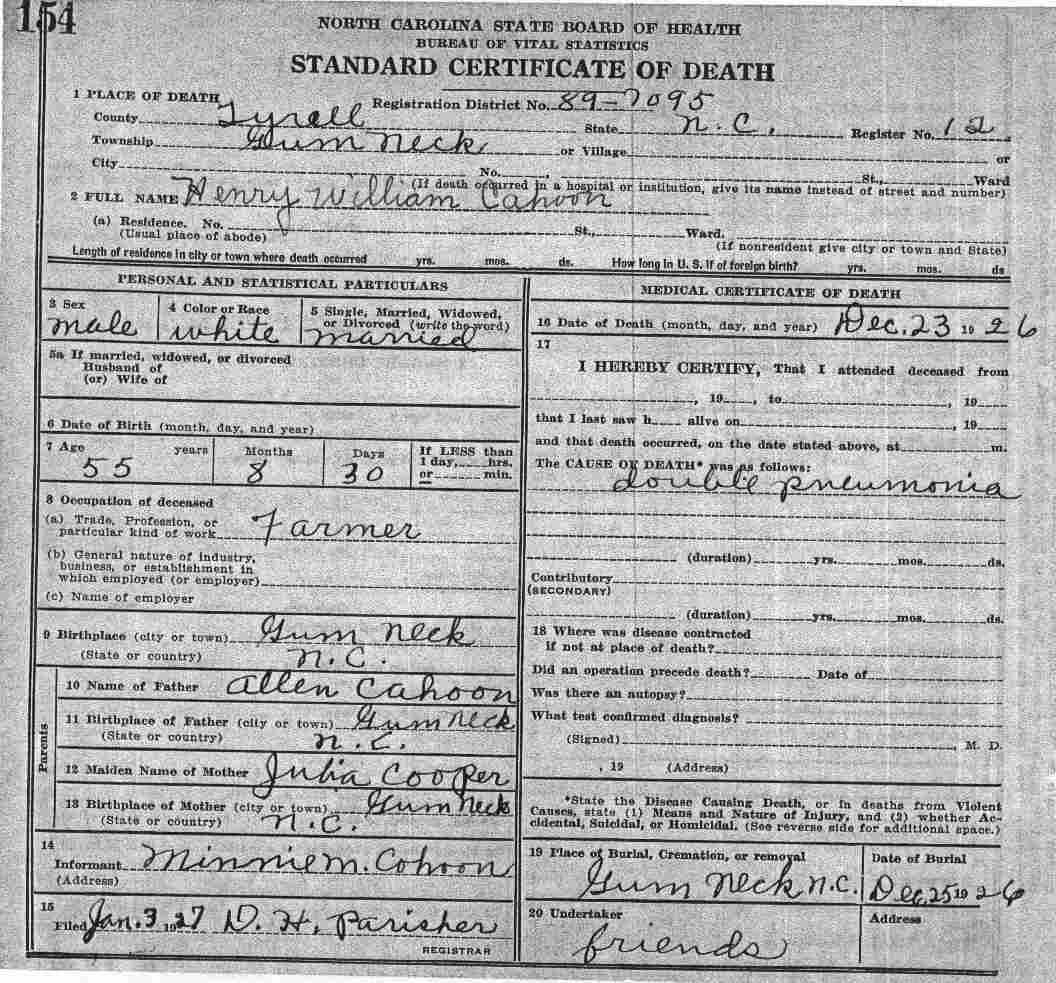 154
NORTH CAROLINA STATE BOARD OF HEALTH
BUREAU OF VITAL STATISTICS
STANDARD CERTIFICATE OF DEATH
1 PLACE OF DEATH Registration District No. 89-7095
County Tyrell State N.C. Register No. 12
Township Gum Neck or Village or
City No. St., Ward
(If death occurred in a hospital or institution, give its name instead of street and number)
2 FULL NAME Henry William Cahoon
(a) Residence. No. St., Ward.
(Usual place of abode) (If nonresident give city or town and State)
Length of residence in city or town where death occurred yrs. mos. ds. How long in U. S. if of foreign birth? yrs. mos. ds
PERSONAL AND STATISTICAL PARTICULARS
3 Sex 4 Color or Race 5 Single, Married, Widowed,
or Divorced (write the word)
male white married
5a If married, widowed, or divorced
Husband of
(or) Wife of
6 Date of Birth (month, day, and year)
7 Age years Months Days If LESS than
1 day, hrs.
or min.
55 8 30
8 Occupation of deceased
(a) Trade, Profession, or
particular kind of work Farmer
(b) General nature of industry,
business, or establishment in
which employed (or employer)
(c) Name of employer
9 Birthplace (city or town) Gum Neck
(State or country) N.C.
Parents
10 Name of Father Allen Cahoon
11 Birthplace of Father (city or town) Gum Neck
(State or country) N.C.
12 Maiden Name of Mother Julia Cooper
13 Birthplace of Mother (city or town) Gum Neck
(State or country) N.C.
14
Informant Minnie M. Cohoon
(Address)
15
Filed Jan. 3 1927 D. H. Parisher
REGISTRAR
MEDICAL CERTIFICATE OF DEATH
16 Date of Death (month, day, and year) Dec. 23 1926
17
I HEREBY CERTIFY, That I attended deceased from
, 19 , to , 19
that I last saw h alive on , 19
and that death occurred, on the date stated above, at m.
The CAUSE OF DEATH* was as follows:
double pneumonia
(duration) yrs. mos. ds.
Contributory
(SECONDARY)
(duration) yrs. mos. ds.
18 Where was disease contracted
if not at place of death?
Did an operation precede death? Date of
Was there an autopsy?
What test confirmed diagnosis?
(Signed) , M. D.
, 19 (Address)
*State the Disease Causing Death, or in deaths from Violent
Causes, state (1) Means and Nature of Injury, and (2) whether Ac-
cidental, Suicidal, or Homicidal. (See reverse side for additional space.)
19 Place of Burial, Cremation, or removal Date of Burial
Gum Neck N.C. Dec. 25 1926
20 Undertaker Address
friends